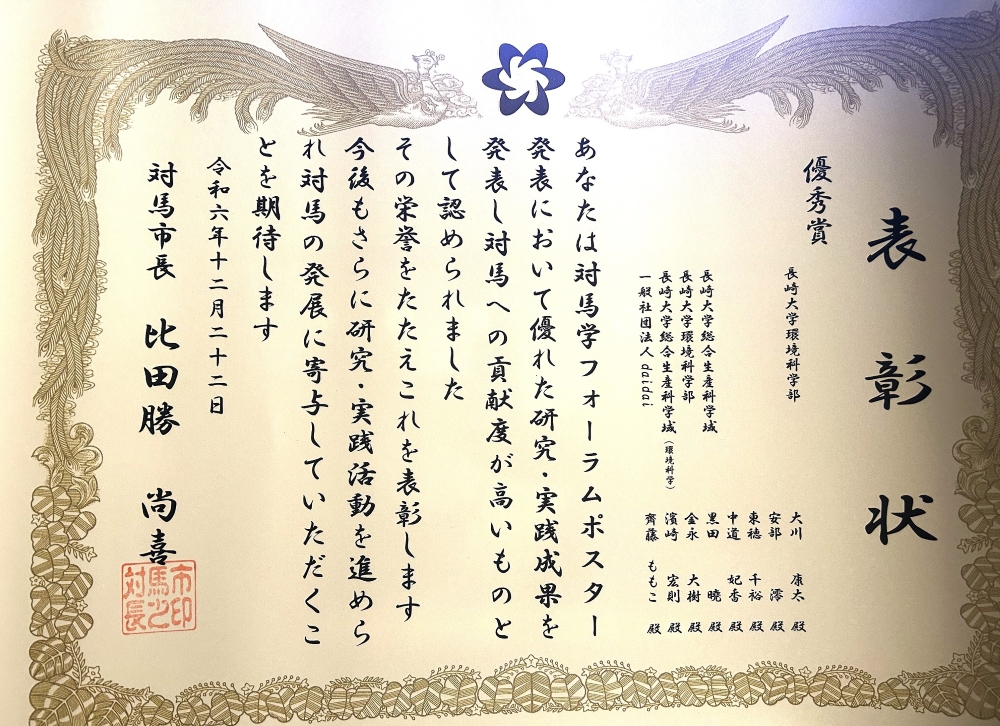 表彰状
優秀賞
長崎大学環境科学部 大川 康太 殿
安部 澪 殿
東穂 千裕 殿
中道 妃香 殿
長崎大学総合生産科学域 黒田 暁 殿
長崎大学環境科学部 金永 大樹 殿
長崎大学総合生産科学域(環境科学) 濱崎 宏則 殿
一般社団法人daidai 齊藤 ももこ 殿
あなたは対馬学フォーラムポスター
発表において優れた研究・実践成果を
発表し対馬への貢献度が高いものと
して認められました
その栄誉をたたえこれを表彰します
今後もさらに研究・実践活動を進めら
れ対馬の発展に寄与していただくこ
とを期待します
令和六年十二月二十二日
対馬市長 比田勝 尚喜
市印
馬之
対長